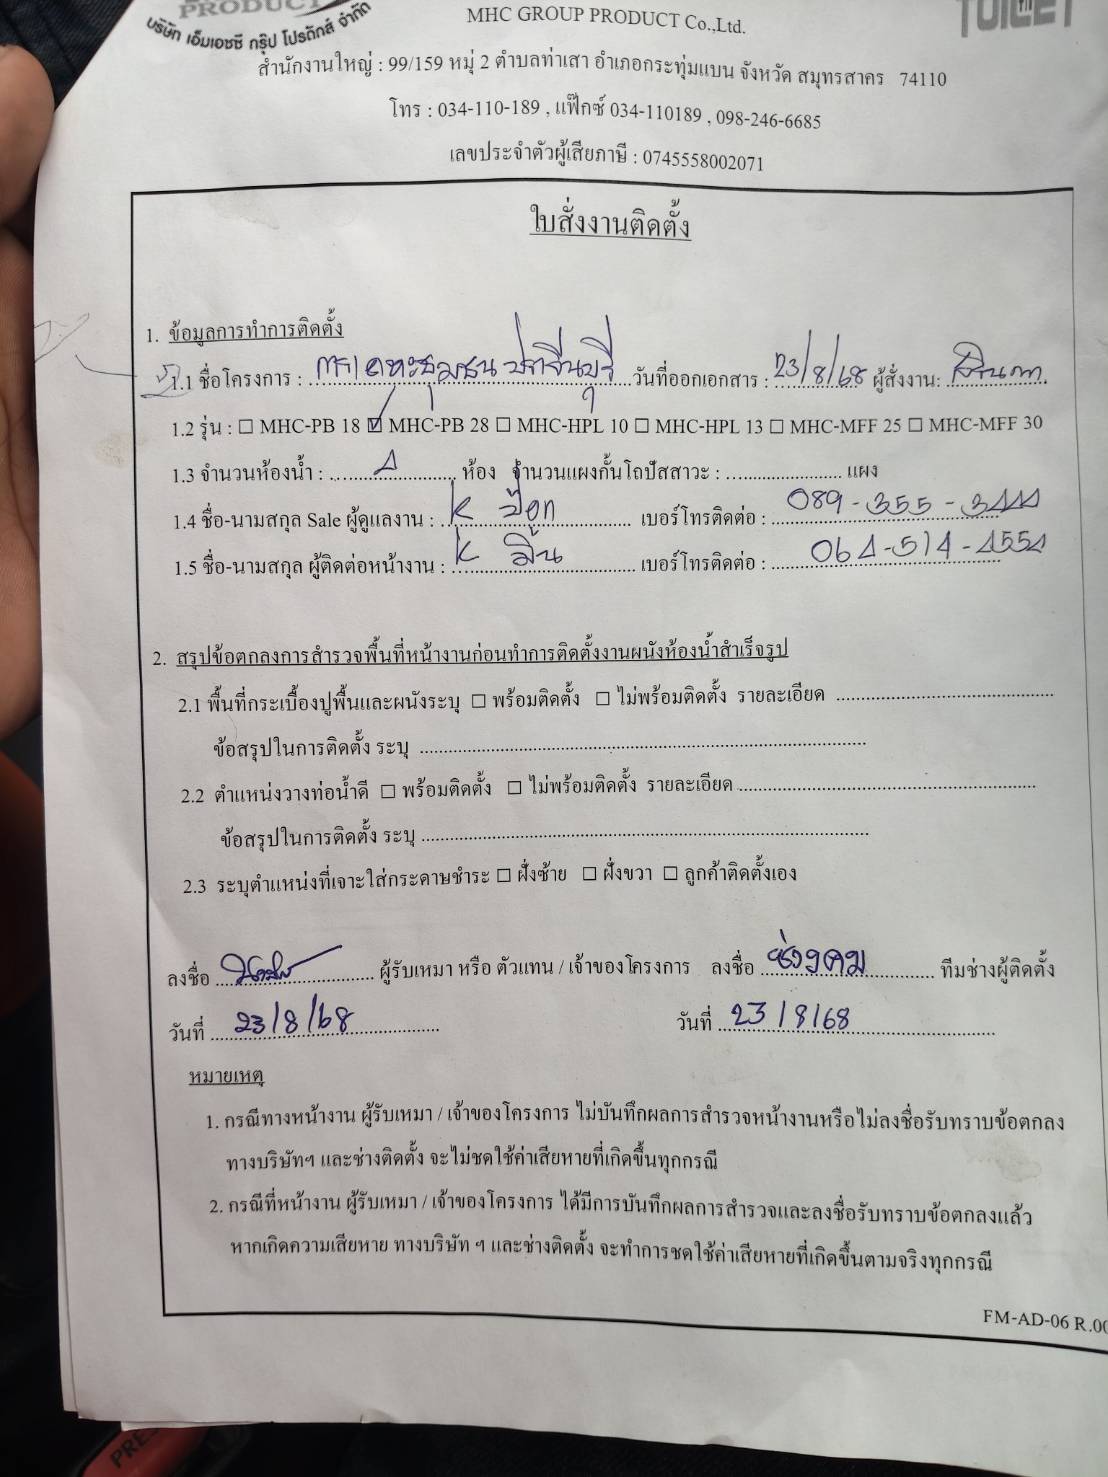 PRODUCT
บริษัท เอ็มเอชซี กรุ๊ป โปรดักส์ จำกัด
TOILET
MHC GROUP PRODUCT Co.,Ltd.
สำนักงานใหญ่ : 99/159 หมู่ 2 ตำบลท่าเสา อำเภอกระทุ่มแบน จังหวัด สมุทรสาคร 74110
โทร : 034-110-189 , แฟ๊กซ์ 034-110189 , 098-246-6685
เลขประจำตัวผู้เสียภาษี : 0745558002071
ใบสั่งงานติดตั้ง
1. ข้อมูลการทำการติดตั้ง
1.1 ชื่อโครงการ : การเคหะชุมชน ปราจีนบุรี วันที่ออกเอกสาร : 23/8/68 ผู้สั่งงาน:
1.2 รุ่น : ☐ MHC-PB 18 ☑ MHC-PB 28 ☐ MHC-HPL 10 ☐ MHC-HPL 13 ☐ MHC-MFF 25 ☐ MHC-MFF 30
1.3 จำนวนห้องน้ำ : 4 ห้อง จำนวนแผงกั้นโถปัสสาวะ : ........................ แผง
1.4 ชื่อ-นามสกุล Sale ผู้ดูแลงาน : K เบอร์โทรติดต่อ : 089-355-3444
1.5 ชื่อ-นามสกุล ผู้ติดต่อหน้างาน : K เบอร์โทรติดต่อ : 064-514-4554
2. สรุปข้อตกลงการสำรวจพื้นที่หน้างานก่อนทำการติดตั้งงานผนังห้องน้ำสำเร็จรูป
2.1 พื้นที่กระเบื้องปูพื้นและผนังระบุ ☐ พร้อมติดตั้ง ☐ ไม่พร้อมติดตั้ง รายละเอียด ........................
ข้อสรุปในการติดตั้ง ระบุ ........................
2.2 ตำแหน่งวางท่อน้ำดี ☐ พร้อมติดตั้ง ☐ ไม่พร้อมติดตั้ง รายละเอียด ........................
ข้อสรุปในการติดตั้ง ระบุ ........................
2.3 ระบุตำแหน่งที่เจาะใส่กระดาษชำระ ☐ ฝั่งซ้าย ☐ ฝั่งขวา ☐ ลูกค้าติดตั้งเอง
ลงชื่อ ผู้รับเหมา หรือ ตัวแทน / เจ้าของโครงการ ลงชื่อ ช่างคม ทีมช่างผู้ติดตั้ง
วันที่ 23/8/68 วันที่ 23/8/68
หมายเหตุ
1. กรณีทางหน้างาน ผู้รับเหมา / เจ้าของโครงการ ไม่บันทึกผลการสำรวจหน้างานหรือไม่ลงชื่อรับทราบข้อตกลง
ทางบริษัทฯ และช่างติดตั้ง จะไม่ชดใช้ค่าเสียหายที่เกิดขึ้นทุกกรณี
2. กรณีที่หน้างาน ผู้รับเหมา / เจ้าของโครงการ ได้มีการบันทึกผลการสำรวจและลงชื่อรับทราบข้อตกลงแล้ว
หากเกิดความเสียหาย ทางบริษัท ฯ และช่างติดตั้ง จะทำการชดใช้ค่าเสียหายที่เกิดขึ้นตามจริงทุกกรณี
FM-AD-06 R.00